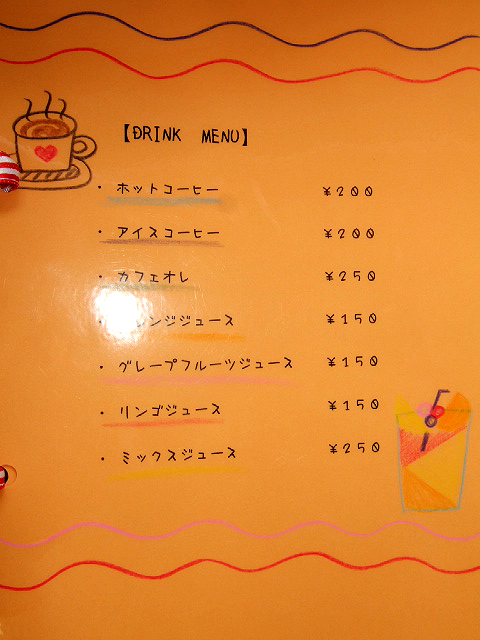 【DRINK MENU】
・ ホットコーヒー ¥200
・ アイスコーヒー ¥200
・ カフェオレ ¥250
・ レンジジュース ¥150
・ グレープフルーツジュース ¥150
・ リンゴジュース ¥150
・ ミックスジュース ¥250